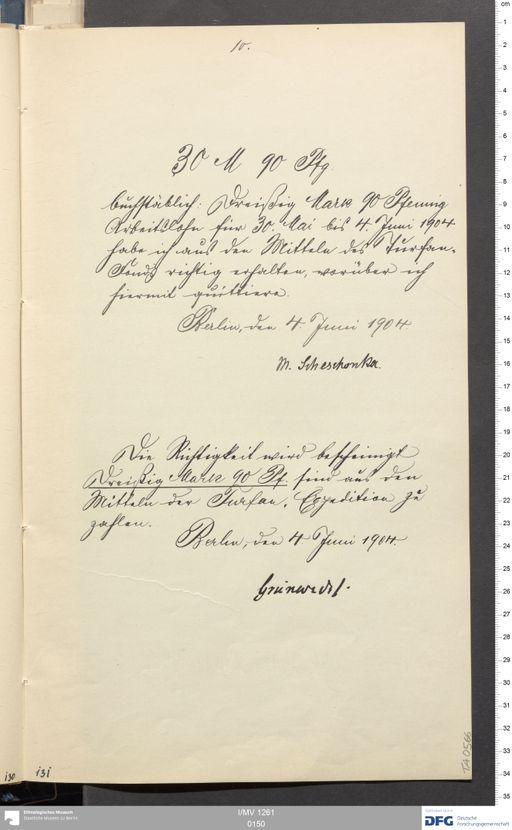 10.
30 M 90 Pfg.
buchstäblich: Dreißig Mark 90 Pfennig
Arbeitslohn für 30. Mai bis 4. Juni 1904
habe ich aus den Mitteln des Turfan-
Fonds richtig erhalten, worüber ich
hiermit quittiere.
Berlin, den 4. Juni 1904.
M. Scheschonka.
Die Richtigkeit wird bescheinigt
Dreißig Mark 90 Pf. sind aus den
Mitteln der Turfan-Expedition zu
zahlen.
Berlin, den 4 Juni 1904.
Grünwedel.
130
131
TA 0566
Ethnologisches Museum
Staatliche Museen zu Berlin
I/MV 1261
0150
DFG Deutsche
Forschungsgemeinschaft
cm
1
2
3
4
5
6
7
8
9
10
11
12
13
14
15
16
17
18
19
20
21
22
23
24
25
26
27
28
29
30
31
32
33
34
35